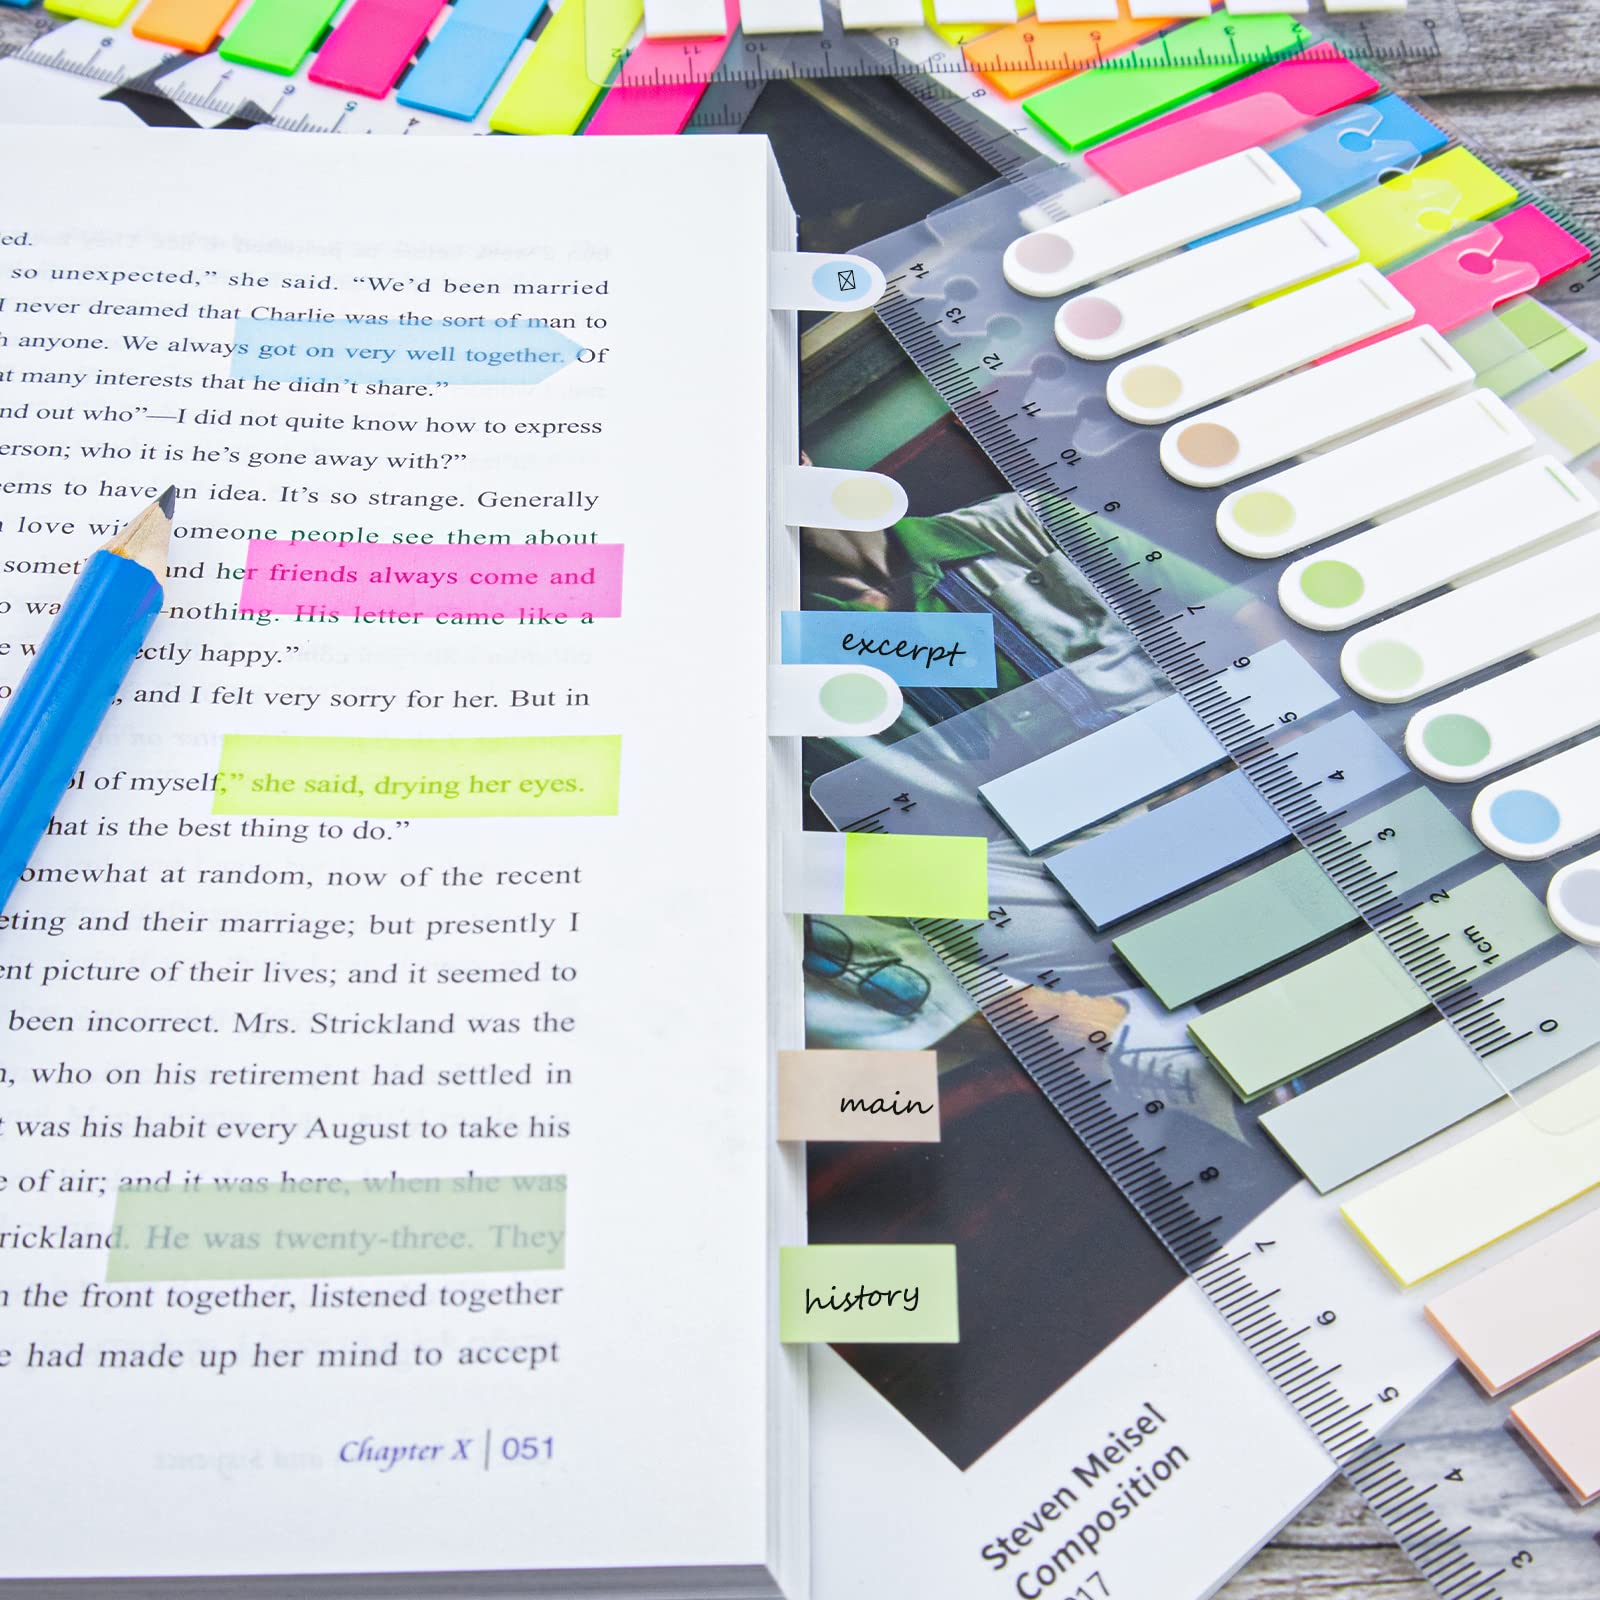 so unexpected,” she said. “We’d been married
I never dreamed that Charlie was the sort of man to
anyone. We always got on very well together. Of
many interests that he didn’t share.”
out who”—I did not quite know how to express
who it is he’s gone away with?”
to have an idea. It’s so strange. Generally
love people see them about
and her friends always come and
—nothing. His letter came like a
happy.”
and I felt very sorry for her. But in
of myself,” she said, drying her eyes.
is the best thing to do.”
at random, now of the recent
and their marriage; but presently I
picture of their lives; and it seemed to
been incorrect. Mrs. Strickland was the
who on his retirement had settled in
was his habit every August to take his
of air; and it was here, when she was
He was twenty-three. They
the front together, listened together
had made up her mind to accept
Chapter X | 051
excerpt
main
history
Steven Meisel
Composition
14
13
12
11
10
9
8
7
6
5
4
3
2
1cm
0
14
12
11
10
9
8
7
6
5
4
3